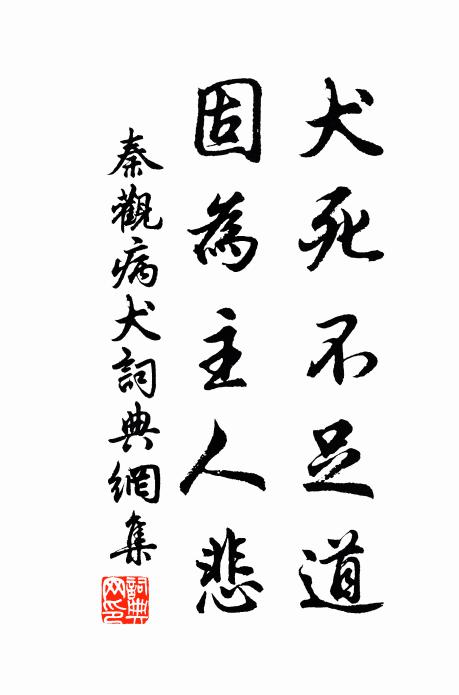 犬死不足道
固為主人悲
秦觀病犬詞典網集
詞典網印